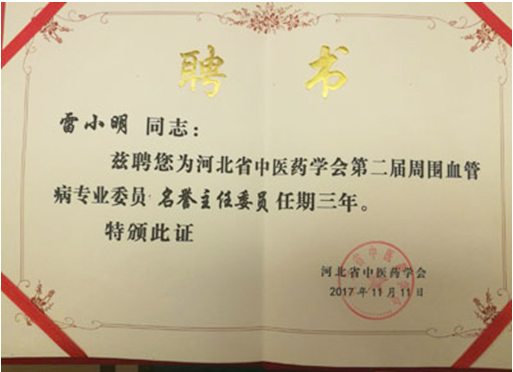 聘书
雷小明 同志：
兹聘您为河北省中医药学会第二届周围血管
病专业委员 名誉主任委员任期三年。
特颁此证
河北省中医药学会
2017年11月11日